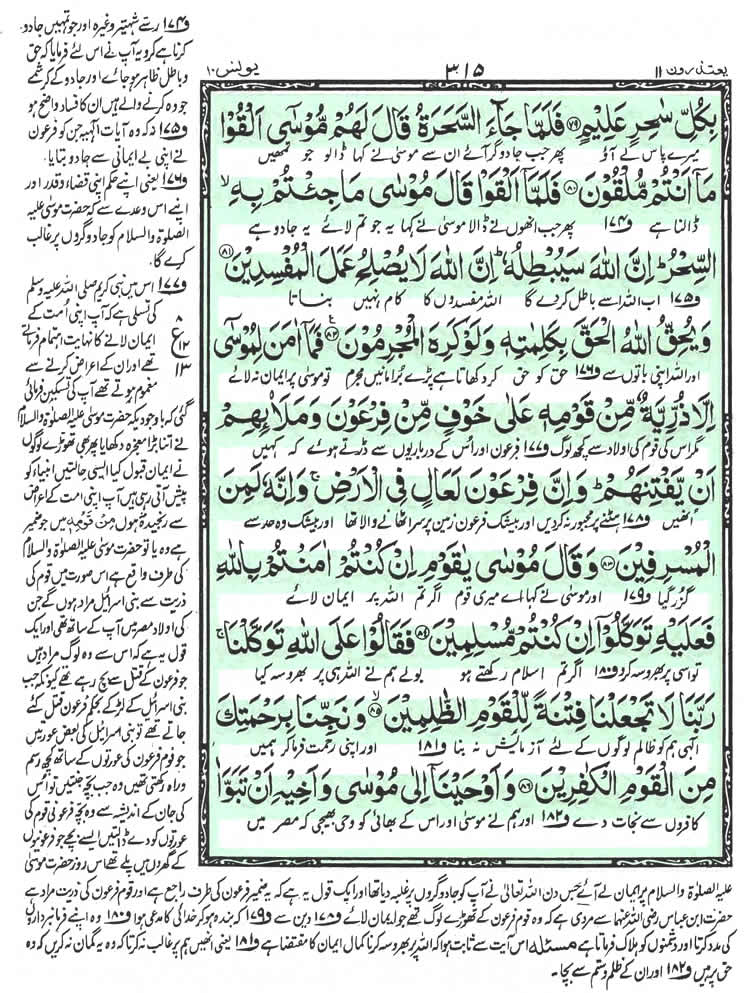 یعتذرون ۱۱
۳۱۵
یونس ۱۰
بِكُلِّ سٰحِرٍ عَلِیْمٍ ﴿۷۹﴾ فَلَمَّا جَآءَ السَّحَرَةُ قَالَ لَهُمْ مُّوْسٰۤى اَلْقُوْا
میرے پاس لے آؤ پھر جب جادوگر آئے ان سے موسیٰ نے کہا ڈالو جو تمہیں
مَاۤ اَنْتُمْ مُّلْقُوْنَ ﴿۸۰﴾ فَلَمَّاۤ اَلْقَوْا قَالَ مُوْسٰى مَا جِئْتُمْ بِهِ ۙ
ڈالنا ہے و۱۷۴ پھر جب انھوں نے ڈالا موسیٰ نے کہا یہ جو تم لائے یہ جادو ہے
السِّحْرُ ؕ اِنَّ اللّٰهَ سَیُبْطِلُهٗ ؕ اِنَّ اللّٰهَ لَا یُصْلِحُ عَمَلَ الْمُفْسِدِیْنَ ﴿۸۱﴾
و۱۷۵ اب اللہ اسے باطل کردے گا اللہ مفسدوں کا کام نہیں بناتا
وَ یُحِقُّ اللّٰهُ الْحَقَّ بِكَلِمٰتِهٖ وَ لَوْ كَرِهَ الْمُجْرِمُوْنَ ﴿۸۲﴾ فَمَاۤ اٰمَنَ لِمُوْسٰۤى
اور اللہ اپنی باتوں سے و۱۷۶ حق کو حق کر دکھاتا ہے پڑے برا مانیں مجرم تو موسیٰ پر ایمان نہ لائے
اِلَّا ذُرِّیَّةٌ مِّنْ قَوْمِهٖ عَلٰى خَوْفٍ مِّنْ فِرْعَوْنَ وَ مَلَاۡىٕهِمْ
مگر اس کی قوم کی اولاد سے کچھ لوگ و۱۷۷ فرعون اور اس کے درباریوں سے ڈرتے ہوئے کہ کہیں
اَنْ یَّفْتِنَهُمْ ؕ وَ اِنَّ فِرْعَوْنَ لَعَالٍ فِی الْاَرْضِ ۚ وَ اِنَّهٗ لَمِنَ
انھیں و۱۷۸ ہٹنے پر مجبور نہ کردیں اور بیشک فرعون زمین پر سر اٹھانے والا تھا اور بیشک وہ حد سے
الْمُسْرِفِیْنَ ﴿۸۳﴾ وَ قَالَ مُوْسٰى یٰقَوْمِ اِنْ كُنْتُمْ اٰمَنْتُمْ بِاللّٰهِ
گزر گیا و۱۷۹ اور موسیٰ نے کہا اے میری قوم اگر تم اللہ پر ایمان لائے
فَعَلَیْهِ تَوَكَّلُوْۤا اِنْ كُنْتُمْ مُّسْلِمِیْنَ ﴿۸۴﴾ فَقَالُوْا عَلَى اللّٰهِ تَوَكَّلْنَا ۚ
تو اسی پر بھروسہ کرو و۱۸۰ اگر تم اسلام رکھتے ہو بولے ہم نے اللہ ہی پر بھروسہ کیا
رَبَّنَا لَا تَجْعَلْنَا فِتْنَةً لِّلْقَوْمِ الظّٰلِمِیْنَ ﴿۸۵﴾ وَ نَجِّنَا بِرَحْمَتِكَ
الٰہی ہم کو ظالم لوگوں کے لئے آزمائش نہ بنا و۱۸۱ اور اپنی رحمت فرما کر ہمیں
مِنَ الْقَوْمِ الْكٰفِرِیْنَ ﴿۸۶﴾ وَ اَوْحَیْنَاۤ اِلٰى مُوْسٰى وَ اَخِیْهِ اَنْ تَبَوَّاٰ
کافروں سے نجات دے و۱۸۲ اور ہم نے موسیٰ اور اس کے بھائی کو وحی بھیجی کہ مصر میں
و۱۷۴ رسے شہتیر وغیرہ اور جو تمہیں جادو
کرنا ہے کرو یہ آپ نے اس لئے فرمایا کہ حق
و باطل ظاہر ہو جائے اور جادو کے کرشمے
جو وہ کرنے والے ہیں ان کا فساد واضح ہو
و۱۷۵ نہ کہ وہ آیات الٰہیہ جن کو فرعون
نے اپنی بے ایمانی سے جادو بتایا۔
و۱۷۶ یعنی اپنے حکم اپنی قضاء و قدر اور
اپنے اس وعدے سے کہ حضرت موسیٰ علیہ
الصلوٰۃ والسلام کو جادوگروں پر غالب
کرے گا۔
و۱۷۷ اس میں نبی کریم صلی اللہ علیہ وسلم
کی تسلی ہے کہ آپ اپنی امت کے
ایمان لانے کا نہایت اہتمام فرماتے
تھے اور ان کے اعراض کرنے سے
مغموم ہوتے تھے آپ کی تسکین فرمائی
۸
ع
۱۲
۱۳
گئی کہ باوجودیکہ حضرت موسیٰ علیہ الصلوٰۃ والسلام
نے اتنا بڑا معجزہ دکھایا پھر بھی تھوڑے لوگوں
نے ایمان قبول کیا ایسی حالتیں انبیاء کو
پیش آتی رہی ہیں آپ اپنی امت کے اعراض
سے رنجیدہ نہ ہوں مِنْ قَوْمِهٖ میں جو ضمیر
ہے وہ یا تو حضرت موسیٰ علیہ الصلوٰۃ والسلام
کی طرف راجع ہے اس صورت میں قوم کی
ذریت سے بنی اسرائیل مراد ہوں گے جن
کی اولاد مصر میں آپ کے ساتھ تھی اور ایک
قول یہ ہے کہ اس سے وہ لوگ مراد ہیں
جو فرعون کے قتل سے بچ رہے تھے کیونکہ جب
بنی اسرائیل کے لڑکے بحکم فرعون قتل کئے
جاتے تھے تو بنی اسرائیل کی بعض عورتیں
جو قوم فرعون کی عورتوں کے ساتھ کچھ رسم
و راہ رکھتی تھیں وہ جب بچہ جنتیں تو اس
کی جان کے اندیشہ سے وہ بچہ فرعونی قوم کی
عورتوں کو دے ڈالتیں ایسے بچے جو فرعونیوں
کے گھروں میں پلے تھے اس روز حضرت موسیٰ
علیہ الصلوٰۃ والسلام پر ایمان لے آئے جس دن اللہ تعالیٰ نے آپ کو جادوگروں پر غلبہ دیا تھا اور ایک قول یہ ہے کہ یہ ضمیر فرعون کی طرف راجع ہے اور قوم فرعون کی ذریت مراد ہے
حضرت ابن عباس رضی اللہ عنہما سے مروی ہے کہ وہ قوم فرعون کے تھوڑے لوگ تھے جو ایمان لائے و۱۷۸ دین سے و۱۷۹ کہ بندہ ہو کر خدائی کا مدعی ہوا و۱۸۰ وہ اپنے فرمانبرداروں
کی مدد کرتا اور دشمنوں کو ہلاک فرماتا ہے مسئلہ اس آیت سے ثابت ہوا کہ اللہ پر بھروسہ کرنا کمال ایمان کا مقتضا ہے و۱۸۱ یعنی انھیں ہم پر غالب نہ کر تا کہ وہ یہ گمان نہ کریں کہ وہ
حق پر ہیں و۱۸۲ اور ان کے ظلم و ستم سے بچا۔